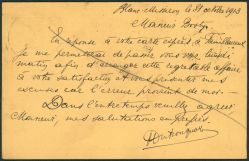 le 31 octobre 1913
Monsieur
En réponse à votre carte
je me permettrai de passer chez vous
matin afin d'arranger cette regrettable affaire
à votre satisfaction et vous présenter mes
excuses car l'erreur provient de moi
Dans l'entretemps veuillez agréer
Monsieur, mes salutations empressées